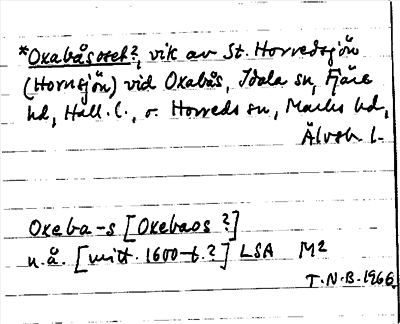 *Oxabåsoset?, vik av St. Horredsjön
(Hornsjön) vid Oxabås, Idala sn, Fjäre
hd, Hall. l., o. Horreds sn, Marks hd,
Älvsb l.
Oxeba-s [Oxebaos?]
u.å. [mitt. 1600-t.?] LSA M2
T.N.B. 1966